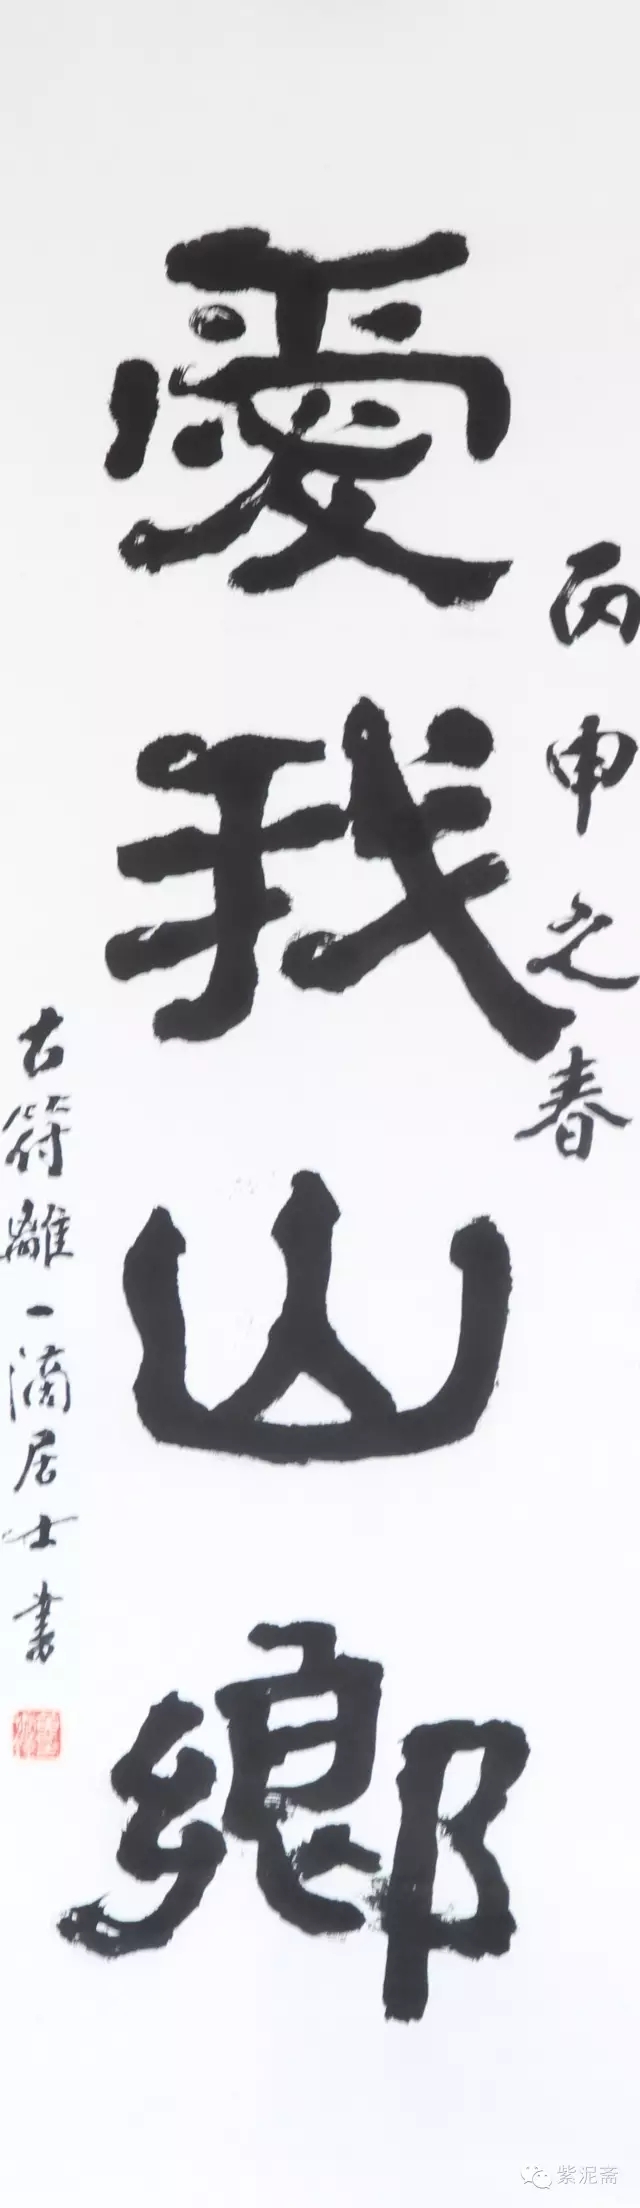 丙申之春
愛我山鄉
古符離一滴居士書
紫泥斋